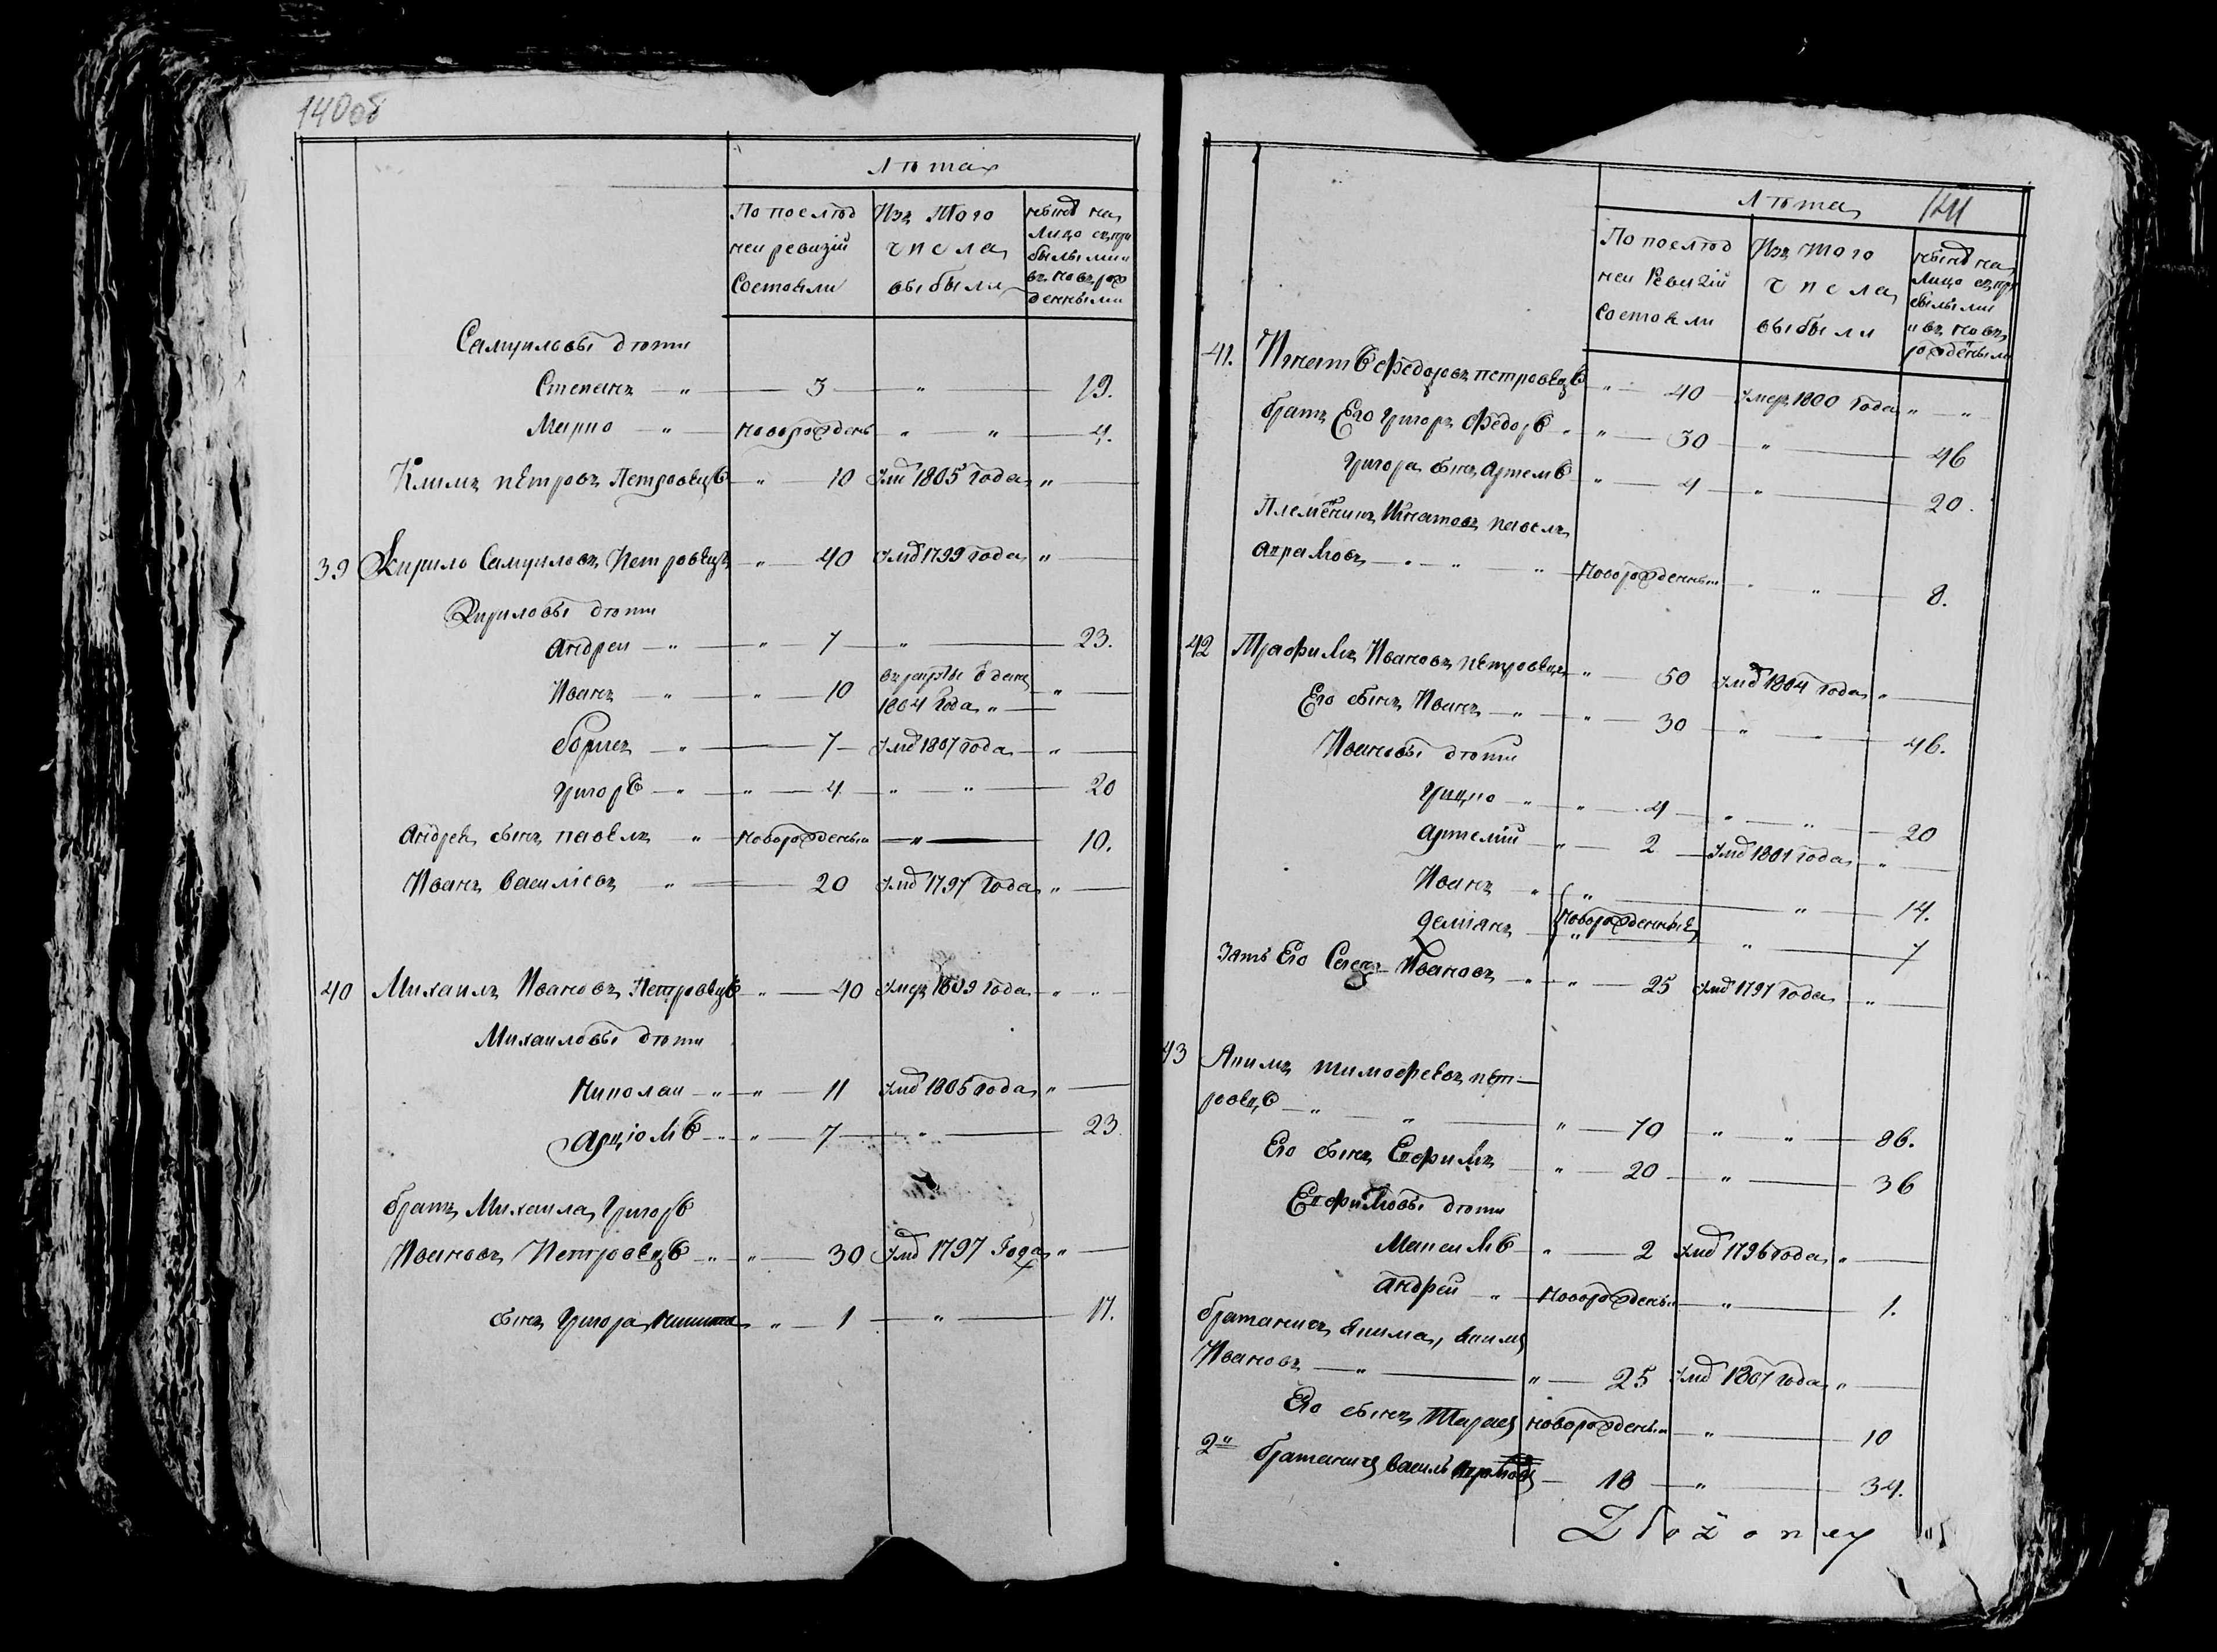 140об
Лѣта
По послѣд Изъ того нынѣ на
ней ревизіи числа лицо съ при
состояли выбыли былыми и
въ новорож
денными
Самуиловы дѣти
Степанъ — „ — 3 — „ — 19.
Марко — „ — новорожденъ „ — „ — 4.
Климъ Петровъ Петровецъ — „ — 10 умѣ 1805 Года „ —
39 Кирило Самуиловъ Петровецъ — „ — 40 умѣ 1799 года „ —
Кириловы дѣти
Андреи — „ — „ — 7 — „ — 23.
Иванъ — „ — „ — 10 въ рекруты вданъ „ —
1804 Года „ —
Борисъ — „ — 7 — умѣ 1807 года — „ —
Григоръ — „ — „ — 4 — „ — „ — 20
Андрея сынъ Павелъ — „ — новорожденыи — „ — 10.
Иванъ Василіевъ — „ — 20 умѣ 1797 Года „ —
40 Михаилъ Ивановъ Петровецъ — „ — 40 умеръ 1809 года — „ „
Михаиловы дѣти
Николаи — „ — „ — 11 умѣ 1805 года „ —
Арціомъ — „ — „ — 7 — „ — 23
братъ Михаила, Григоръ
Ивановъ Петровецъ — „ — „ — 30 умѣ 1797 Года „ —
сынъ Григора, Никита — „ — 1 — „ — 17.
141
Лѣта
По послѣд Изъ того нынѣ на
ней Ревизіи числа лицо съ при
состояли выбыли былыми
и въ новъ
рождеными
41. Игнатъ Федоровъ Петровецъ „ — 40 — умеръ 1800 Года „ — „
братъ Его Григоръ Федоръ „ — „ — 30 — „ — 46
Григора сынъ Артемъ „ — 4 — „ — 20.
Племеникъ Игнатовъ Павелъ
Апрамовъ — „ — „ — „ — новорожденныи — „ — 8.
42 Трафимъ Ивановъ Петровецъ „ — 50 умѣ 1804 Года „ —
Его сынъ Иванъ — „ — „ — 30 — „ — 46.
Ивановы дѣти
Грицко — „ — „ — 4 — „ — „ — 20
Артеміи „ — 2 — умѣ 1801 года — „ —
Иванъ — „ — „ — „ — 14.
Деміанъ новорожденные „ — 7
Зять Его Ивановъ — „ — „ — 25 умѣ 1797 Года „ —
43 Акимъ Тимофеевъ Пет-
ровецъ — „ — „ — „ — 70 — „ — „ — 86.
Его сынъ Ефимъ — „ — 20 — „ — 36
Ефимовы дѣти
Максимъ „ — 2 умѣ 1796 года „ —
Андреи „ — новорожденыи — „ — 1.
братаничъ Акима, Акимъ
Ивановъ — „ — „ — 25 умѣ 1807 Года „ —
Его сынъ Тарасъ новорожденыи — „ — 10
2й братаничъ Василь — 18 — „ — 34.